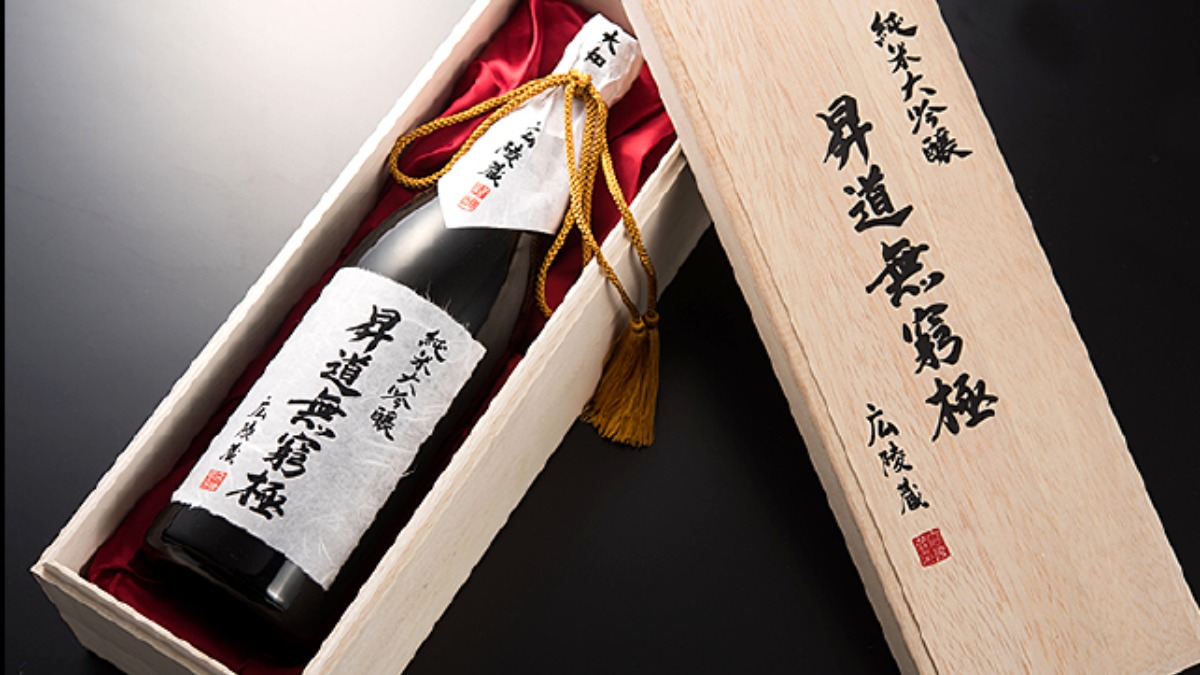 大和
広陵蔵
純米大吟醸
昇道無窮極
広陵蔵
純米大吟醸
昇道無窮極
広陵蔵